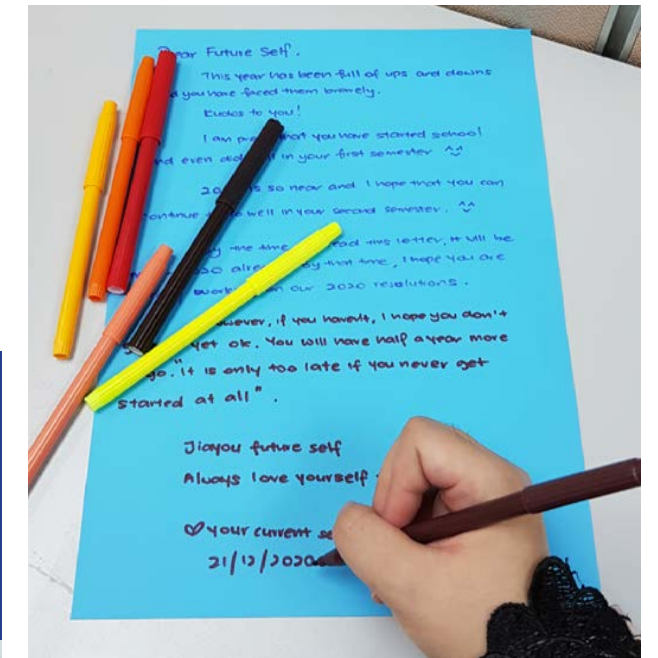 Dear Future Self.
This year has been full of ups and downs
you have faced them bravely.
Kudos to you!
I am that you have started school
and even did in your first semester ^^
is so near and I hope that you can
continue to well in your second semester. ^^
the time read this letter, it will be
by that time, I hope you are
on our 2020 resolutions.
However, if you haven't, I hope you don't
yet ok. You will have half a year more
go. "It is only too late if you never get
started at all".
Jiayou future self
Always love yourself
♡ your current se
21/12/2020